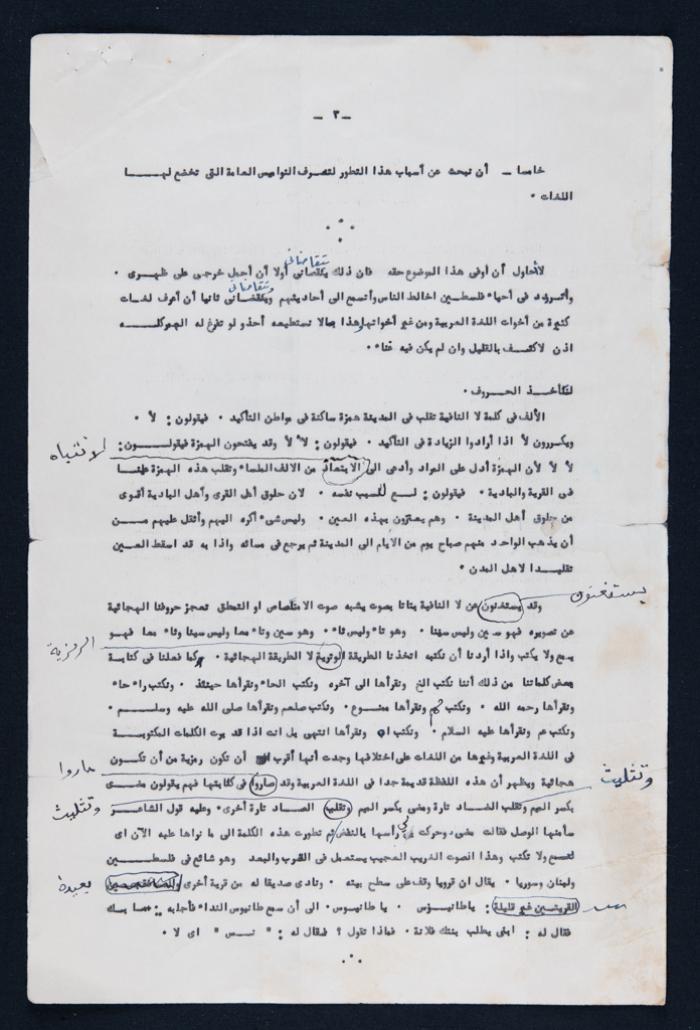 – ٣ –
خامسا – أن نبحث عن أسباب هذا التطور لنتصرف النواميس العامة التي تخضع لهـــا
اللغات ·
لأحاول أن أوفي هذا الموضوع حقه فان ذلك أولا أن أحمل خرجي على ظهري ·
يتقاضاني
وأتــردد في أحياء فلسطين اخالط الناس وأتسمع الى أحاديثهم ثانيا أن أعرف لغات
وتتقاضاني
كثيرة من أخوات اللغة العربية ومن غير أخواتها وهذا مالا تستطيعه أحذو لو تفرغ له الهـوكلــه
اذن لاكتف بالقليل وان لم يكن فيه غناء ·
لنتأخـذ الحـروف ·
الألف في كلمة لا النافية تقلب في المدينة همزة ساكنة في مواطن التأكيد · فيقولون : لأ ·
ويكررون لأ اذا أرادوا الزيادة في التأكيد · فيقولون : لأ لأ وقد يفتحون الهمزة فيقولــون :
لأ لأ لأن الهمزة أدل على المراد وأدعى الى من الالف الملساء وتقلب هذه الهمزة
الانتباه
في القرية والبادية · فيقولون : لــع نفسه · لان حلوق أهل القرى وأهل البادية أقوى
من حلوق أهل المدينة · وهم يعتزون بهذه العين · وليس شيء أكره اليهم وأثقل عليهم مــن
أن يذهب الواحد منهم صباح يوم من الايام الى المدينة ثم يرجع في مسائه واذا به قد اسقط العــين
تقليــدا لاهل المدن ·
وقد يستغنون عن لا النافية بتاتا بصوت يشبه صوت الامتصاص او التمطق تعجز حروفنا الهجائية
يستغنون
عن تصويره فهو سين وليس سينا · وهو تاء وليس تاء · وهو سين وتاء معا وليس سينا وتاء معا فهــو
يسمع ولا يكتب واذا أردنا أن نكتبه اتخذنا الطريقة الرمزية لا الطريقة الهجائية · كما فعلنا في كتابــة
الرمزية
بعض كلماتنا من ذلك أننا نكتب الخ ونقرأها الى آخره ونكتب الحاء ونقرأها حينئذ · ونكتب راء حاء
ونقرأها رحمه الله · ونكتب م ونقرأها ممنوع · ونكتب صلعم ونقرأها صلى الله عليه وسلـم ·
ونكتب عم ونقرأها عليه السلام · ونكتب اه ونقرأها انتهى بل انت اذا قد الكلمات المكتوبــة
في اللغة العربية وغيرها من اللغات على اختلافها وجدت أنها أقرب الى أن تكون رمزية من أن تكــون
هجائية ويظهر أن هذه اللفظة قديمة جدا في اللغة العربية وقد صاروا في كتابتها فهم يقولون مضــى
حاروا
بكسر الميم وتقلب الضاد تارة ومض بكسر الميم وتقلب الصــاد تارة أخرى · وعليه قول الشاعــر
وتثليث
وتثليث
سألتها الوصل فقالت مض · وحركت لي رأسها بالنغض ثم تطورت هذه الكلمة الى ما نراها عليه الآن اى
تسمع ولا تكتب وهذا الصوت الغريب العجيب يستعمل في القرب والبعد وهو شائع في فلسطــين
ولبنان وسوريا · يقال ان قرويا وقف على سطح بيته · ونادى صديقا له من قرية أخرى
بعيدة
القريتــين غير قليلة : ياطانيوس · يا طانيـوس · الى أن سمع طانيوس النداء فأجابه
فقال له : ابني يطلب بنتك فلانة · فماذا تقول ؟ فقال له : " تــس " اى لا ·